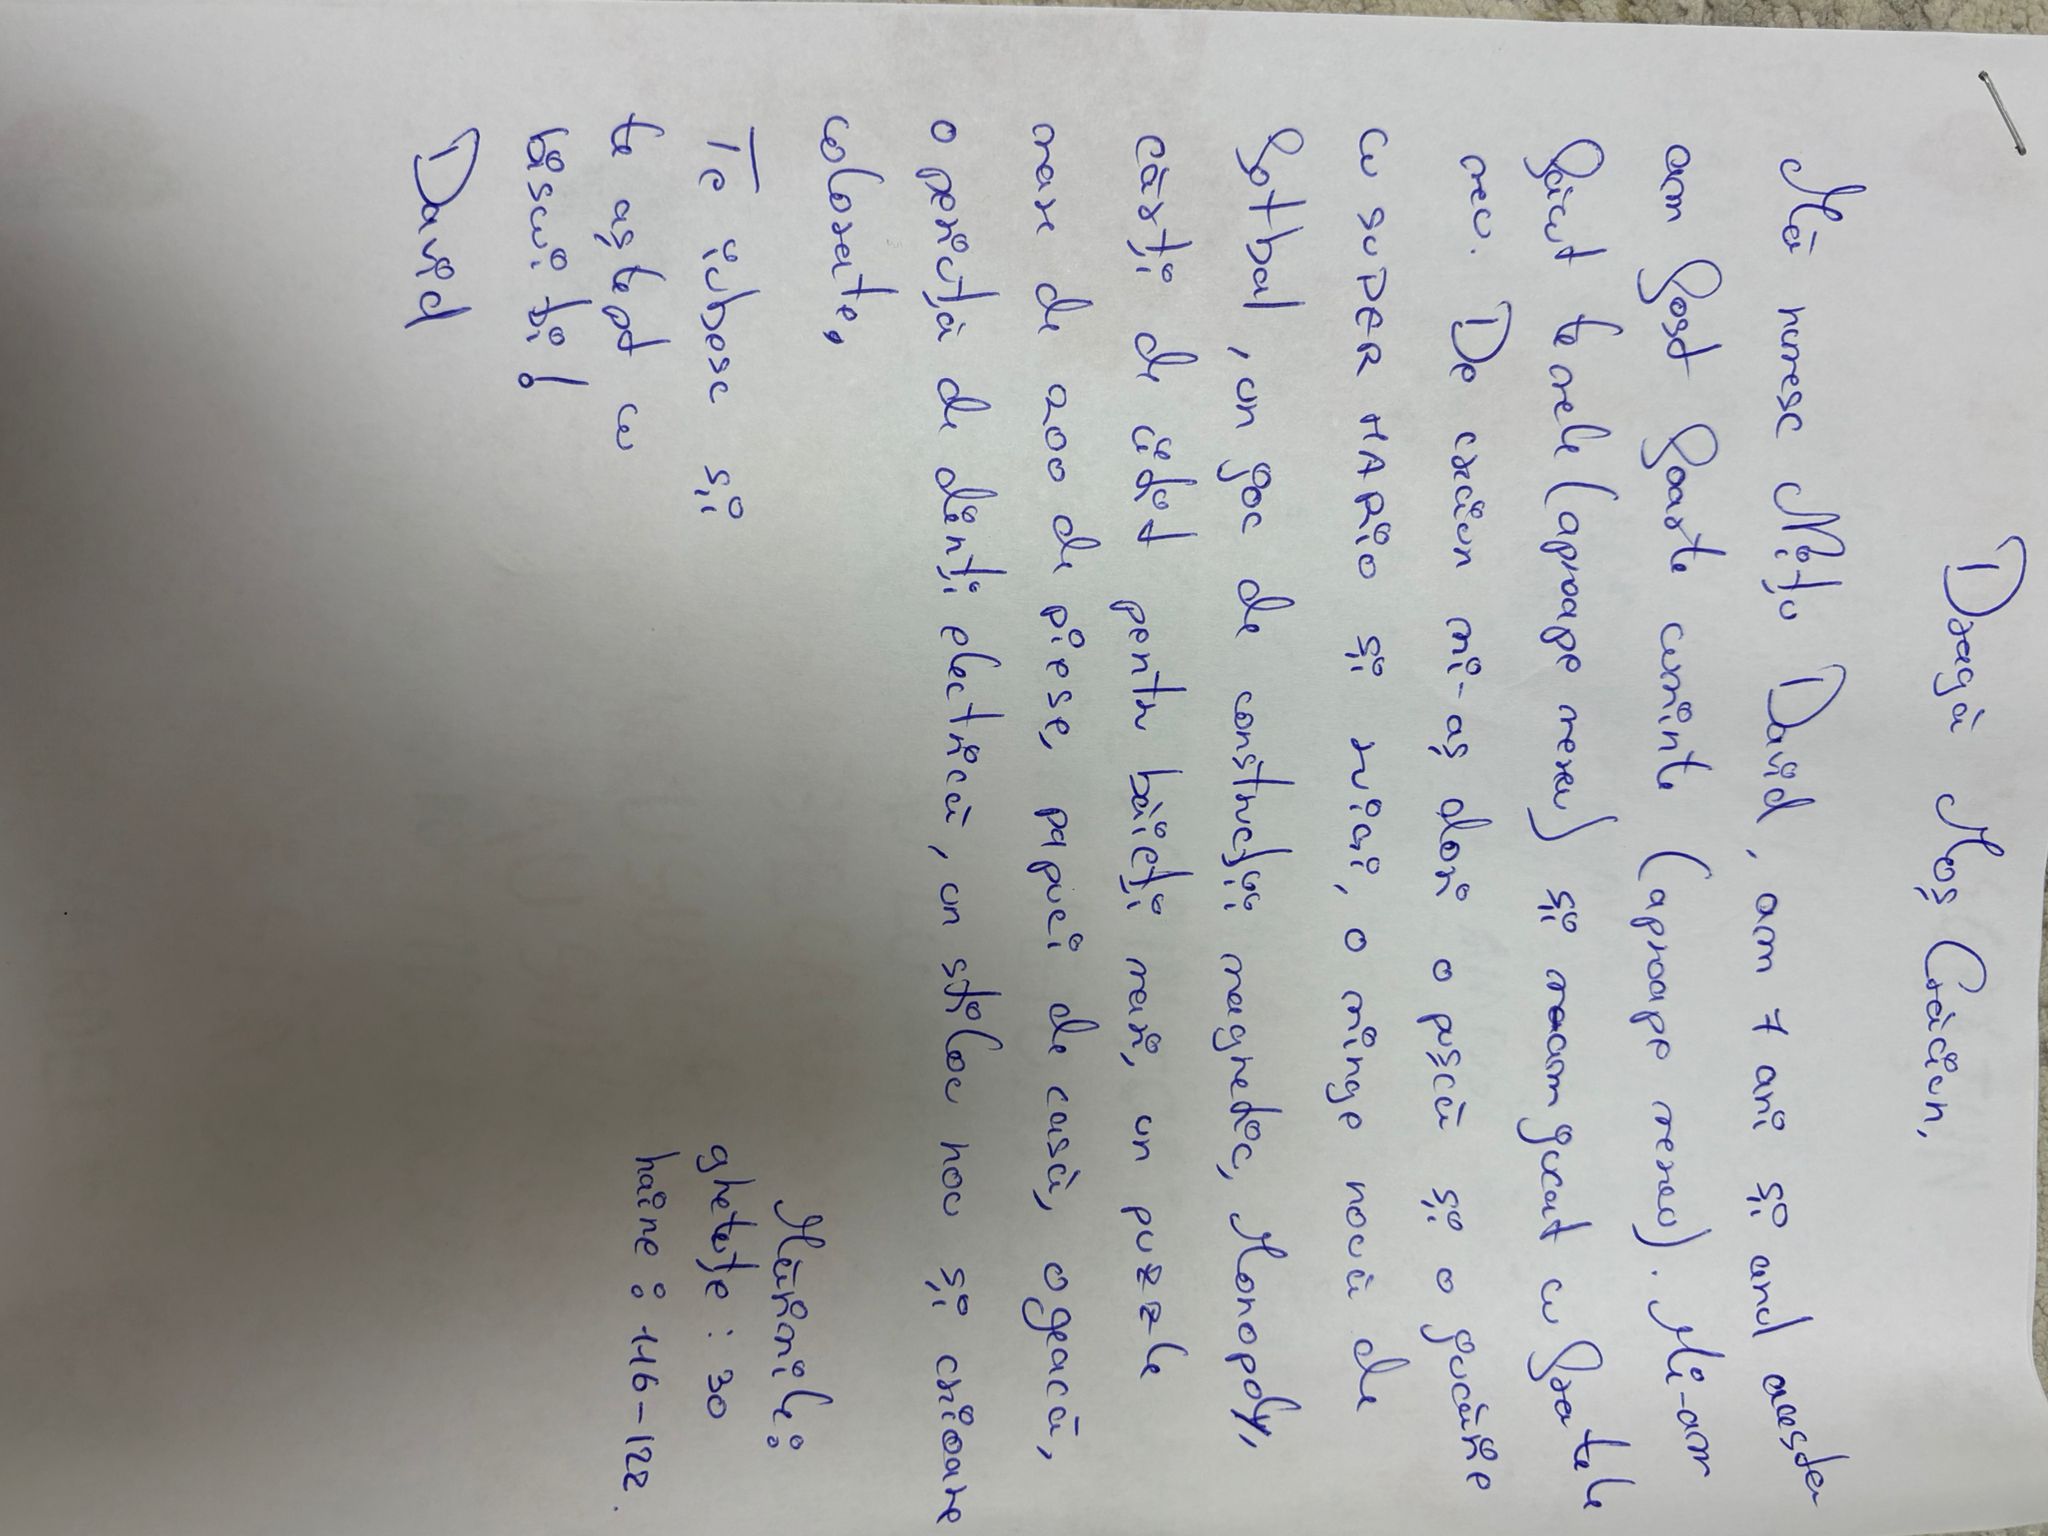 Dragă Moș Crăciun,
Mă numesc Nițu David, am 7 ani și anul acesta
am fost foarte cuminte (aproape mereu). Mi-am
făcut temele (aproape mereu) și m-am jucat cu fratele
meu. De crăciun mi-aș dori o pușcă și o jucărie
cu SUPER MARIO și luigi, o minge nouă de
fotbal, un joc de construcții magnetic, Monopoly,
cărți de citit pentru băieți mari, un puzzle
mare de 200 de piese, papuci de casă, o geacă,
o periuță de dinți electrică, un stilou nou și creioane
colorate,
Te iubesc și
te aștept cu
bisuiți!
David
Mărimile:
ghetuțe: 30
haine: 116-122.